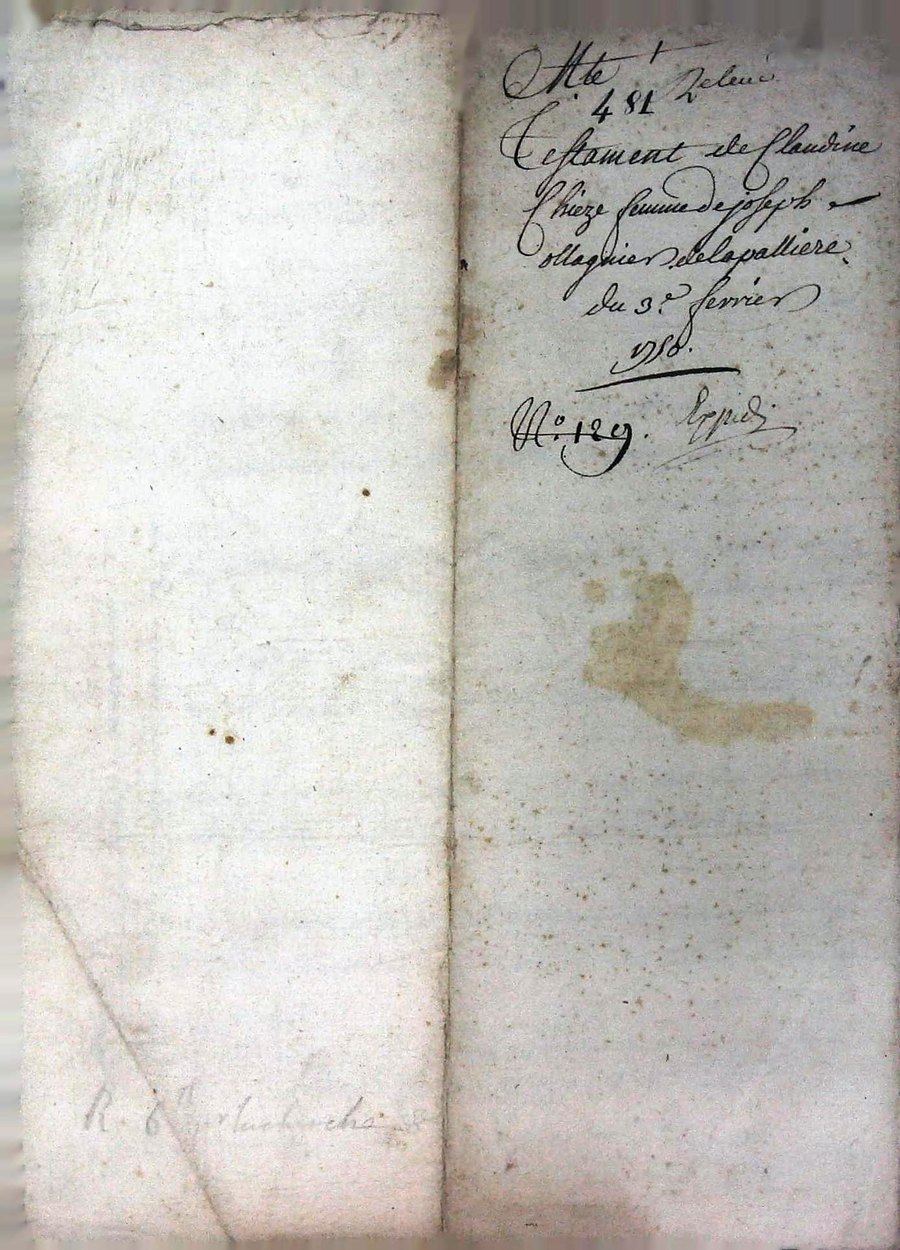 Relevé
481
Testament de Claudine
Chieze femme de joseph
ollagnier de lapalliere
du 3e fevrier
1750.
No. 129. Exped
R. 6